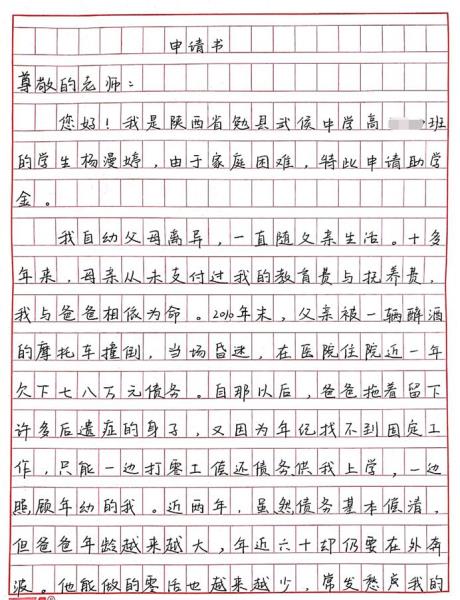 申请书
尊敬的老师：
您好！我是陕西省勉县武侯中学高 班
的学生杨漫婷，由于家庭困难，特此申请助学
金。
我自幼父母离异，一直随父亲生活。十多
年来，母亲从未支付过我的教育费与抚养费，
我与爸爸相依为命。2010年末，父亲被一辆醉酒
的摩托车撞倒，当场昏迷，在医院住院近一年
欠下七八万元债务。自那以后，爸爸拖着留下
许多后遗症的身子，又因为年纪找不到固定工
作，只能一边打零工偿还债务供我上学，一边
照顾年幼的我。近两年，虽然债务基本偿清，
但爸爸年龄越来越大，年近六十却仍要在外奔
波。他能做的零活也越来越少，常发愁 我的